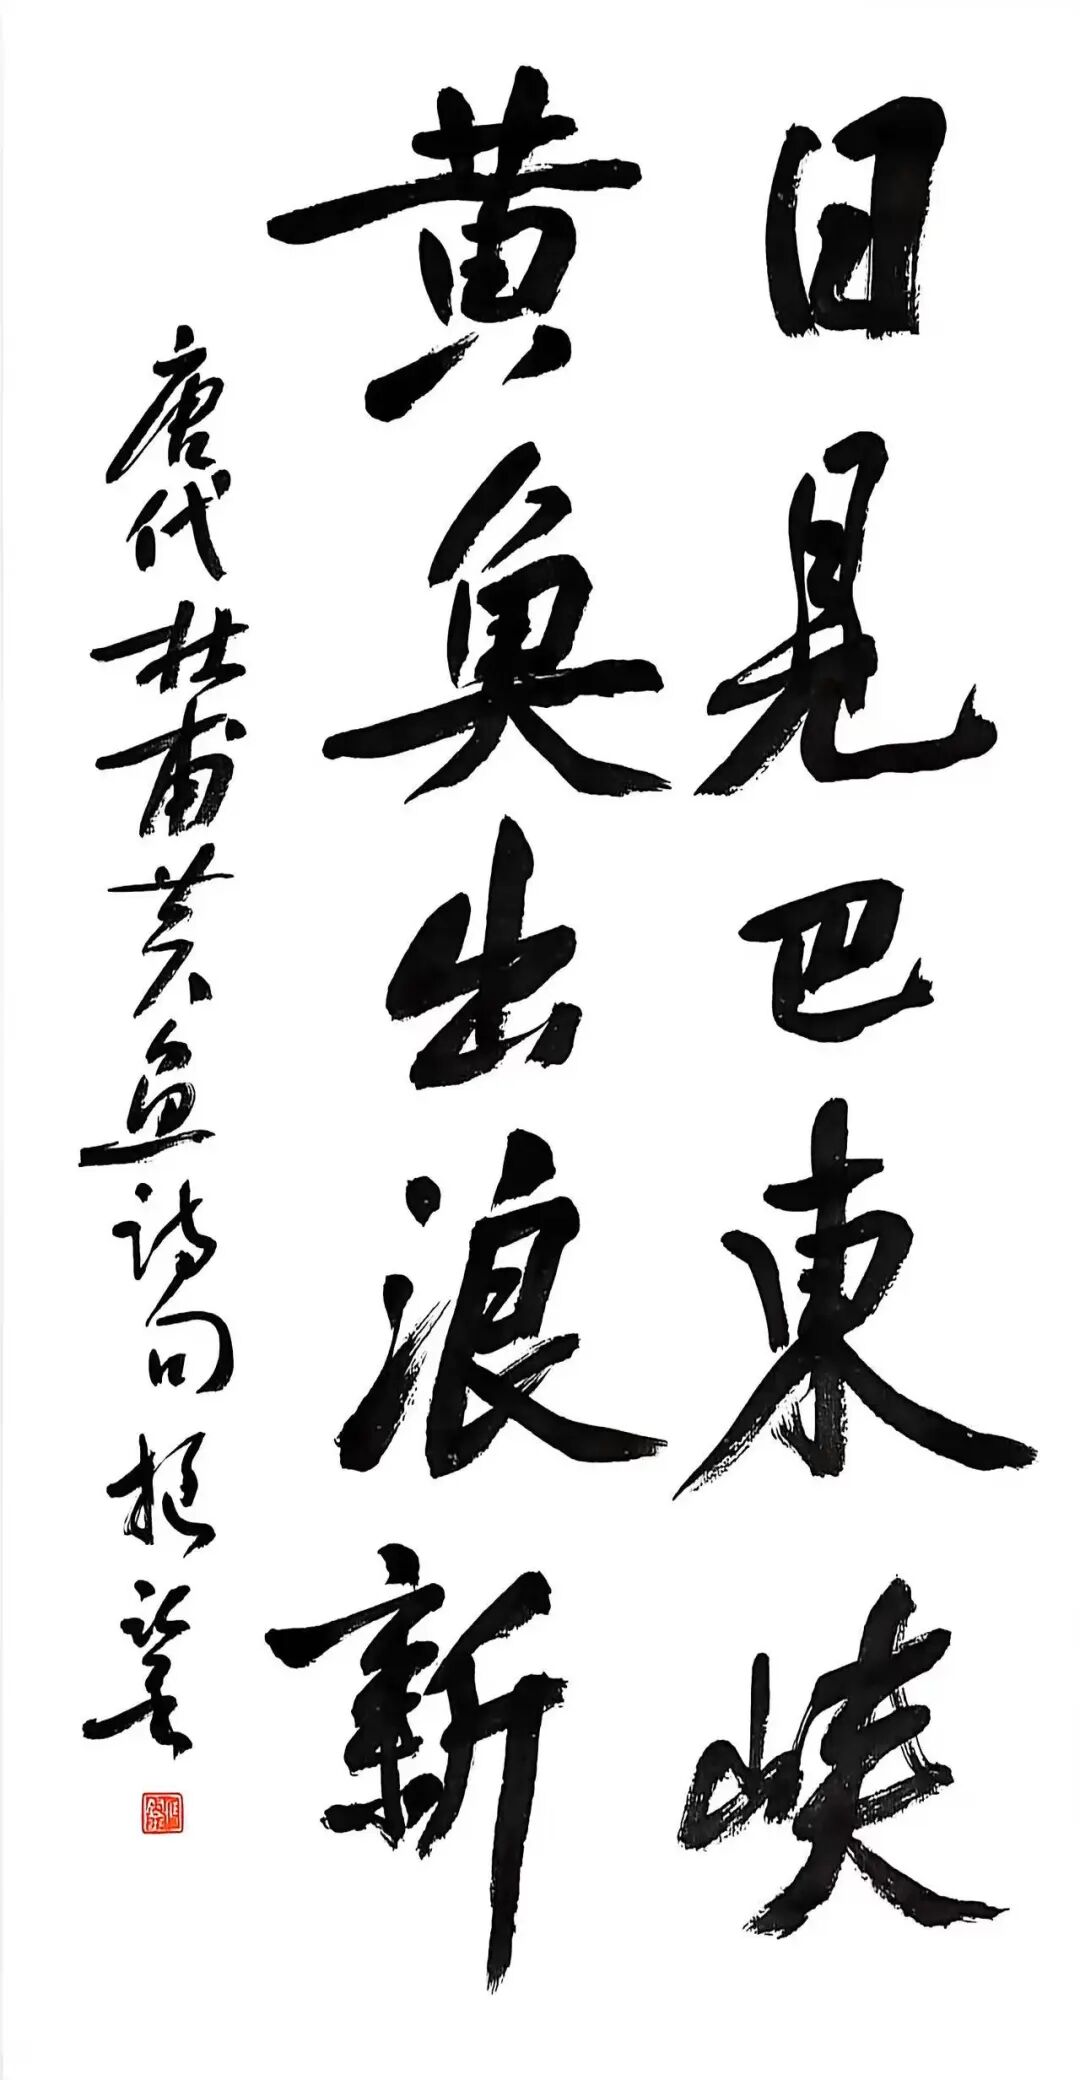 日見巴東峽
黄魚出浪新
唐代杜甫黄魚詩句